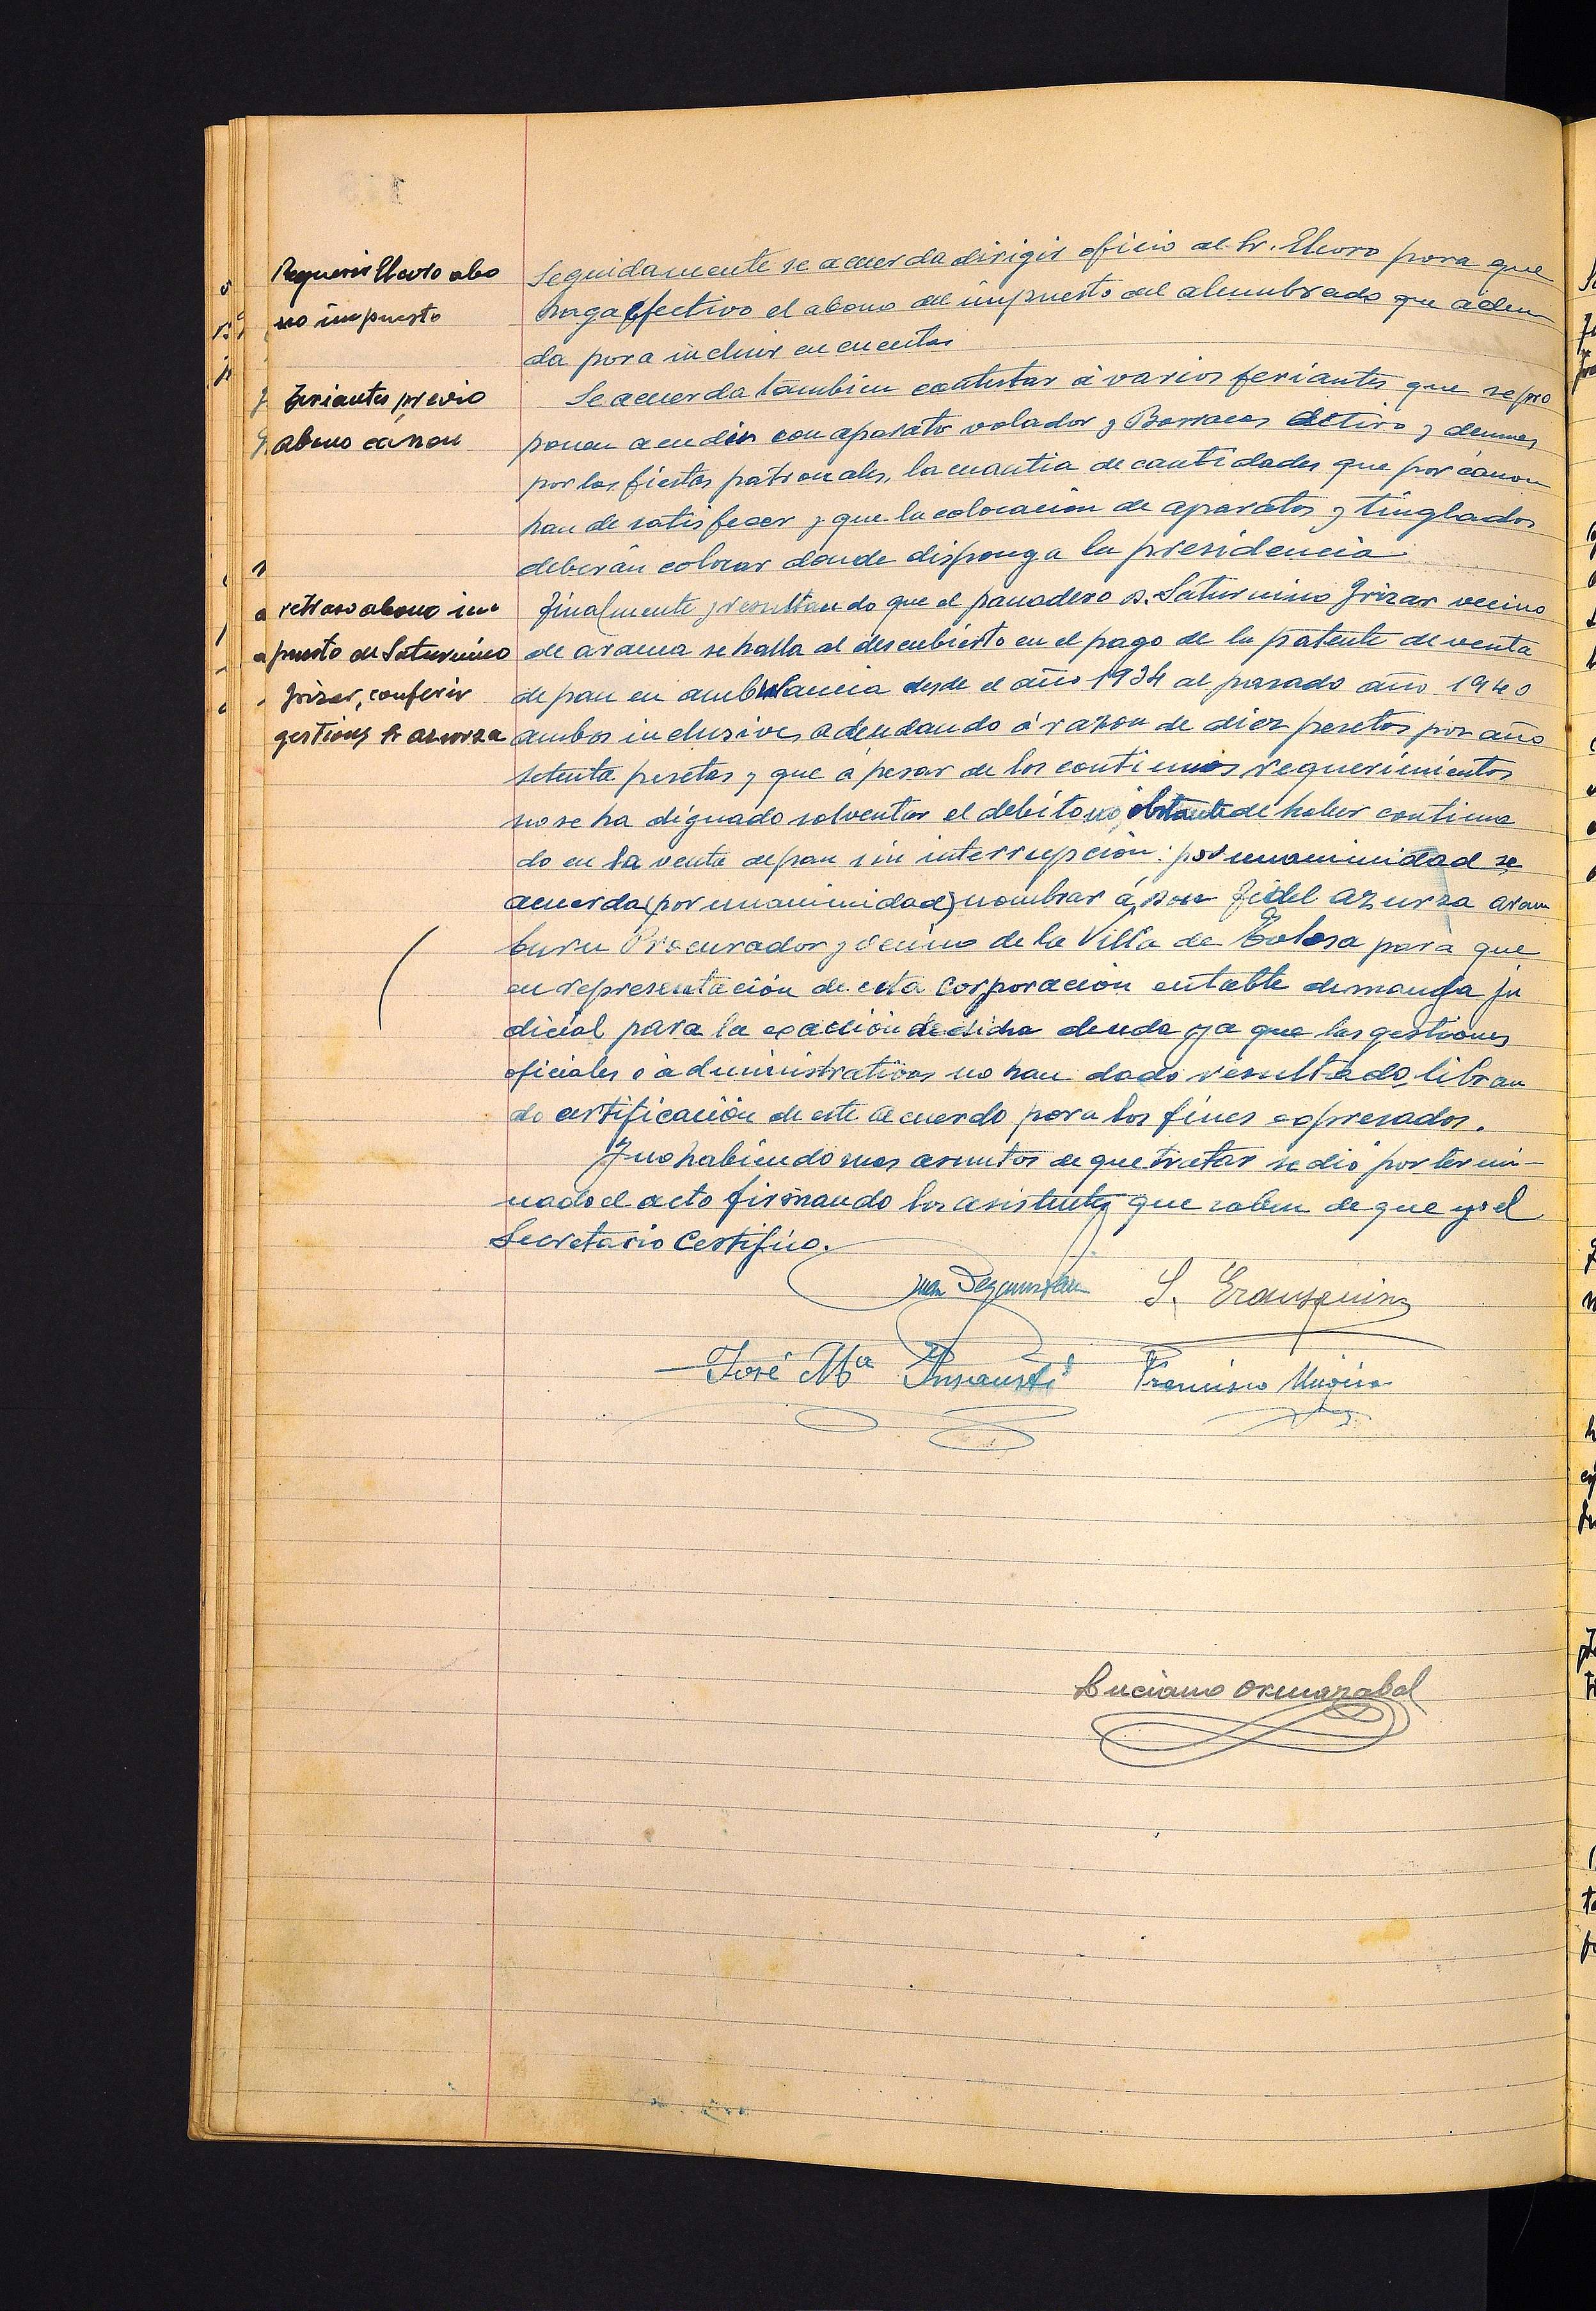 Requerir Elcoro abo
no impuesto
Seguidamente se acuerda dirigir oficio al Sr. Elcoro para que
haga efectivo el abono del impuesto del alumbrado que adeu
da para incluir en cuentas
Feriantes previo
abono cánon
Se acuerda tambien contestar á varios feriantes que se pro
ponen acudir con aparato volador y Barracas de tiro y demas
por las fiestas patronales, la cuantia de cantidades que por cánon
han de satisfacer y que la colocación de aparatos y tinglados
deberán colocar donde disponga la presidencia
retraso abono im
puesto de Saturnino
Irizar, conferir
gestiones Sr azurza
Finalmente resultando que el panadero D. Saturnino Irizar vecino
de arama se halla al descubierto en el pago de la patente de venta
de pan en ambulancia desde el año 1934 al pasado año 1940
ambos inclusives adeudando á razon de diez pesetas por año
setenta pesetas y que á pesar de los continuos requerimientos
no se ha dignado solventar el debito no obstante de haber continua
do en la venta de pan sin interrupción: por unanimidad se
acuerda (por unanimidad) nombrar á Don Fidel azurza aram
buru Procurador y vecino de la Villa de Tolosa para que
en representación de esta Corporación entable demanda ju
dicial para la exacción de dicha deuda ya que las gestiones
oficiales ó administrativas no han dado resultado, libran
do certificación de este acuerdo para los fines expresados.
Y no habiendo mas asuntos de que tratar se dió por termi-
nado el acto firmando los asistentes que saben de que yo el
Secretario Certifico.
Juan S. Erausquin
José Mª Insausti Francisco
Luciano Ormazabal